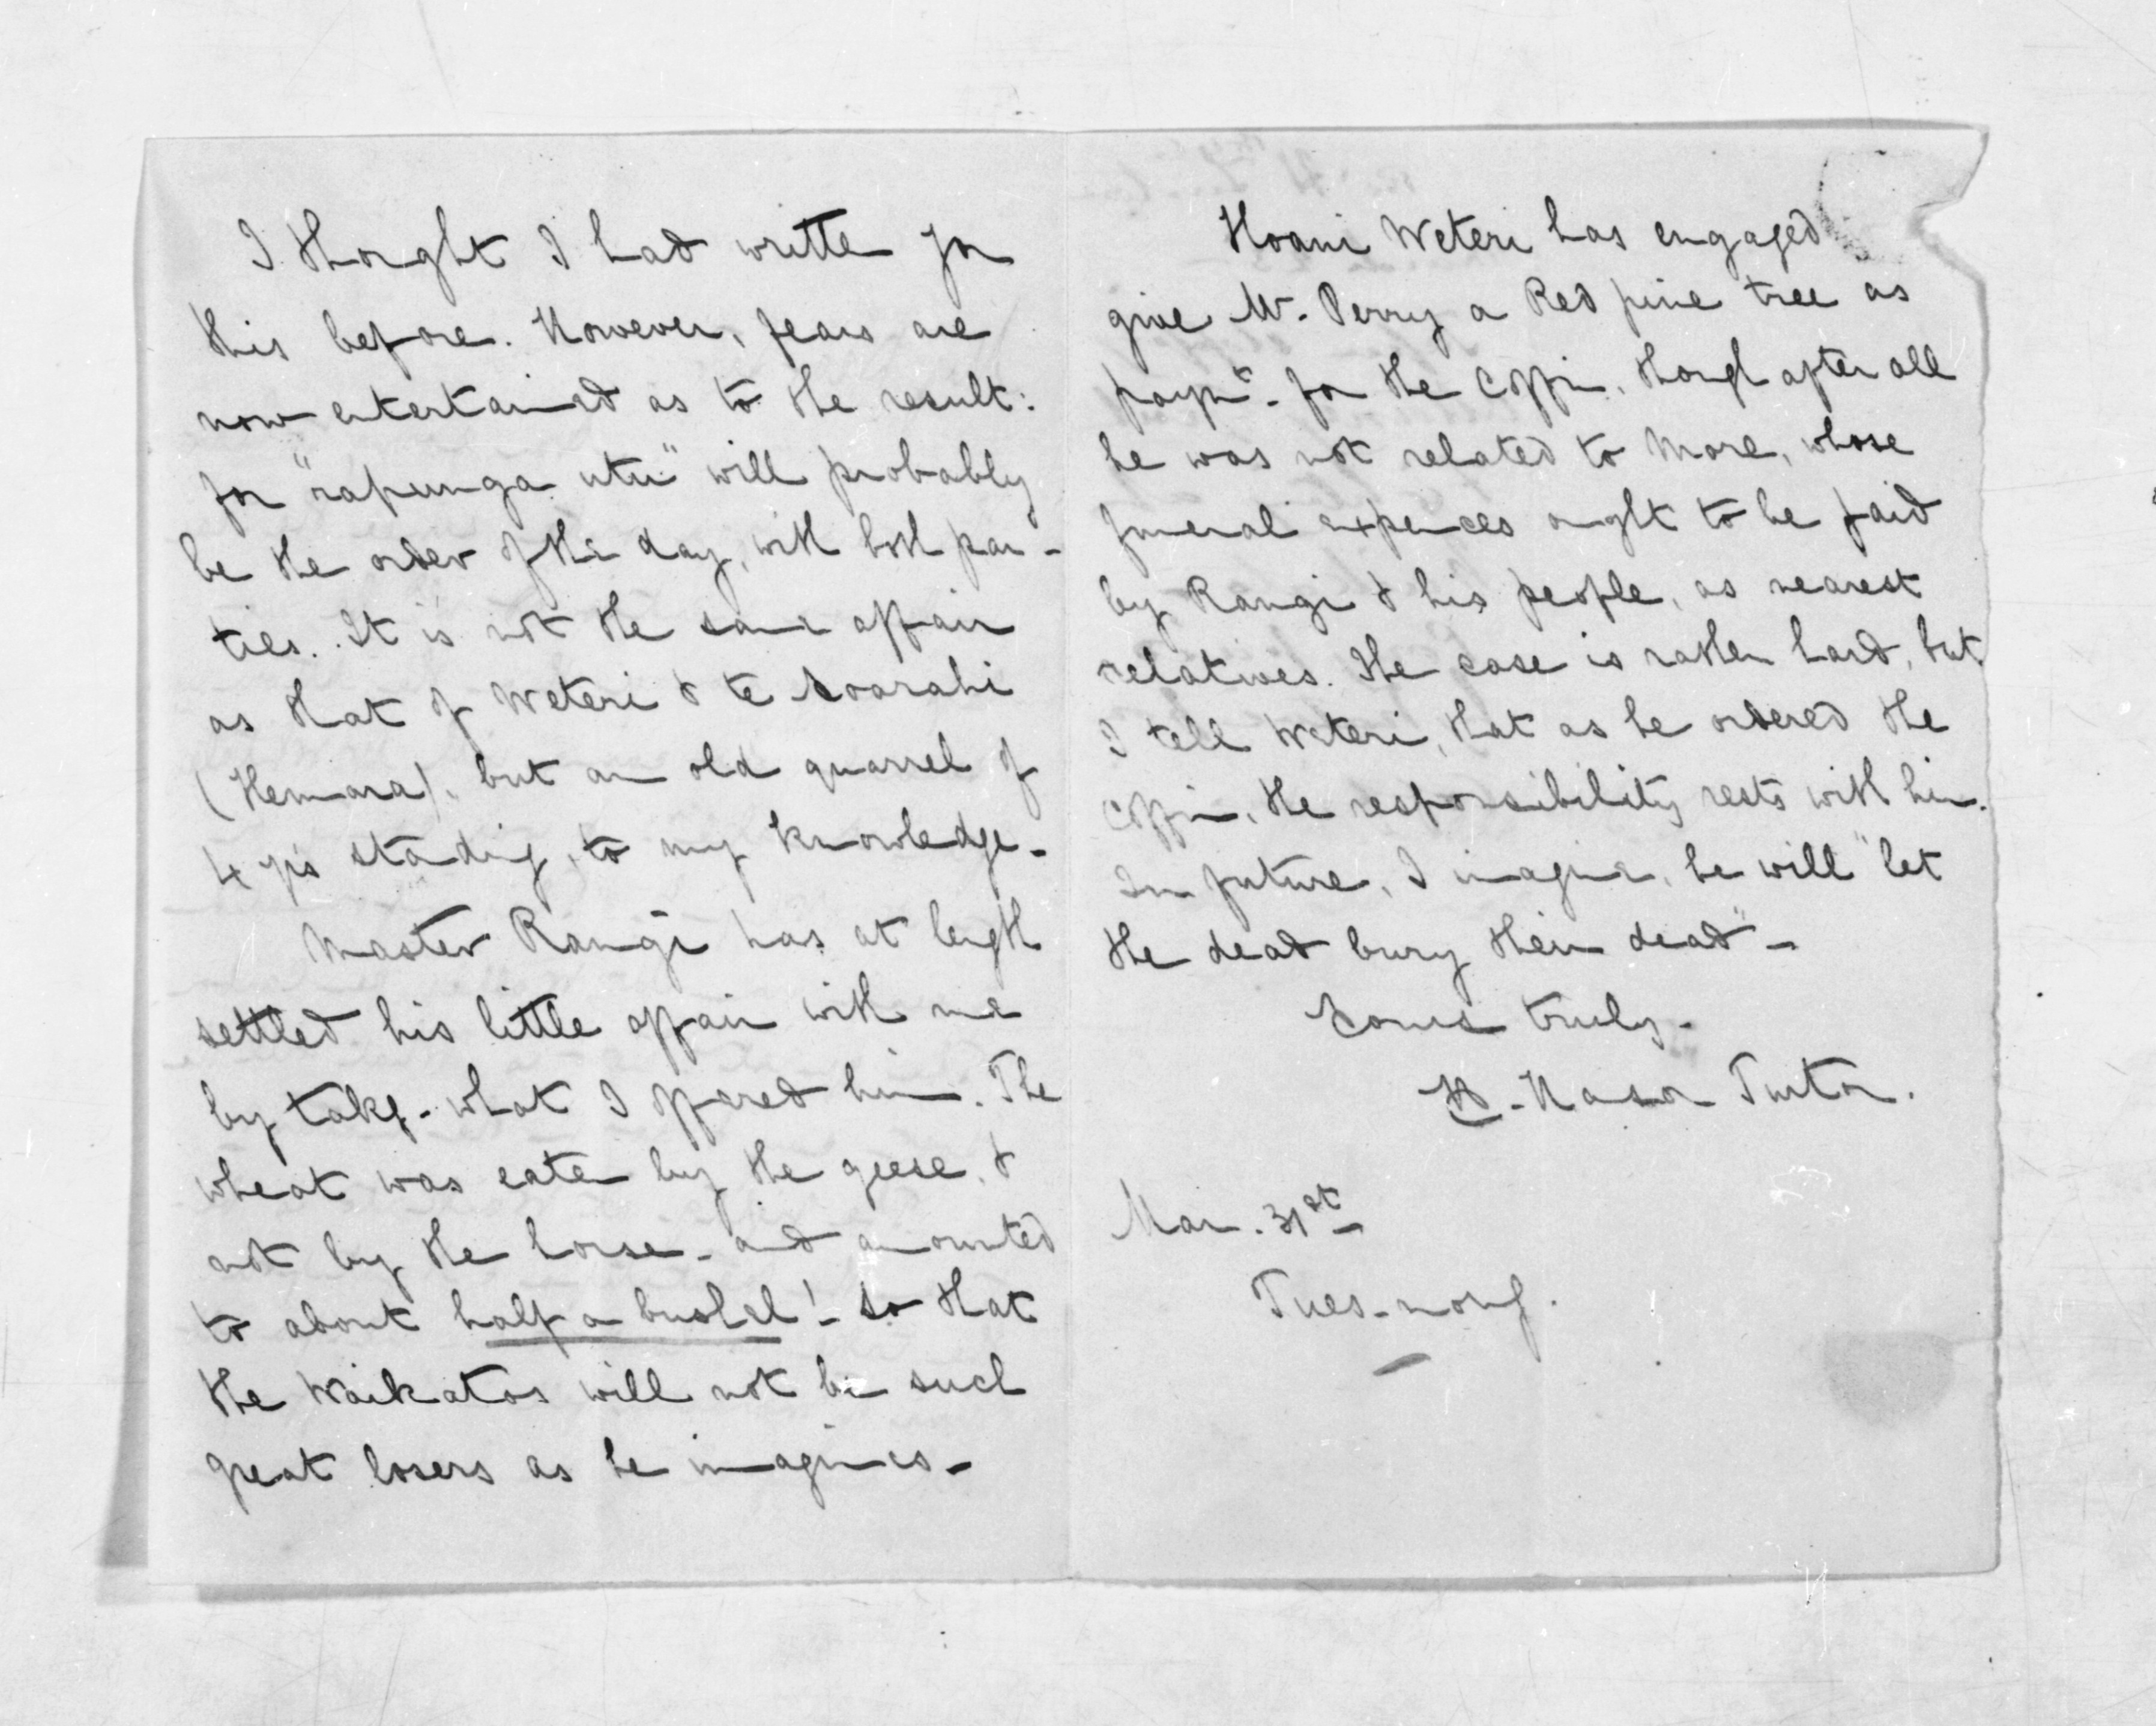 I thought I had written for
this before. However, fears are
now entertained as to the result:
for "rapunga utu" will probably
be the order of the day, with both par-
ties. It is not the same affair
as that of Weteri & te Avarahi
(Hemara), but an old quarrel of
4 yrs standing, to my knowledge-
Master Rangi has at length
settled his little affair with me
by takg. what I offered him. The
wheat was eaten by the geese, &
not by the horse - and amounted
to about half a bushel! - so that
the Waikatos will not be such
great losers as he imagines-
Hoani Weteri has engaged
give Mr. Perry a Red pine tree as
paymt. for the Coffin, though after all
he was not related to More, whose
funeral expences ought to be paid
by Rangi & his people, as nearest
relatives. The case is rather hard, but
I tell Weteri, that as he ordered the
Coffin, the responsibility rests with him.
In future, I imagine, he will "let
the dead bury their dead" -
Yours truly-
H. Hanson Turton.
Mar. 31st
Tues-morng.